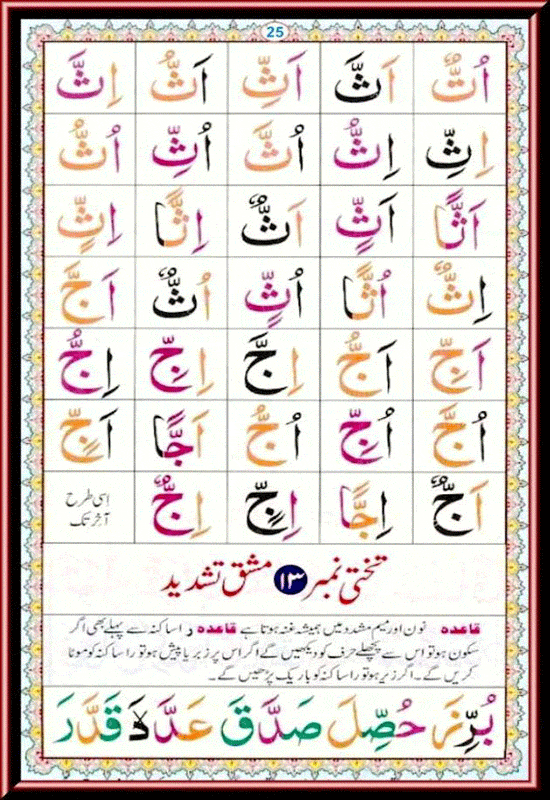 25
اُتٌّ اَثَّ اَثِّ اَثُّ اِثَّ
اِثِّ اِثُّ اُثَّ اُثِّ اُثُّ
اَثًّا اَثٍّ اَثٌّ اِثًّا اِثٍّ
اِثٌّ اُثًّا اُثٍّ اُثٌّ اَجَّ
اَجِّ اَجُّ اِجَّ اِجِّ اِجُّ
اُجَّ اُجِّ اُجُّ اَجًّا اَجٍّ
اَجٌّ اِجًّا اِجٍّ اِجٌّ اسی طرح آخر تک
تختی نمبر ۱۳ مشق تشدید
قاعدہ نون اور میم مشدد میں ہمیشہ غنہ ہوتا ہے قاعدہ را ساکنہ سے پہلے بھی اگر
سکون ہو تو اس سے پچھلے حرف کو دیکھیں گے اگر اس پر زبر یا پیش ہو تو را ساکنہ کو موٹا
کریں گے۔ اگر زیر ہو تو را ساکنہ کو باریک پڑھیں گے۔
بُرِّزَ حُصِّلَ صَدَّقَ قَدَّرَ